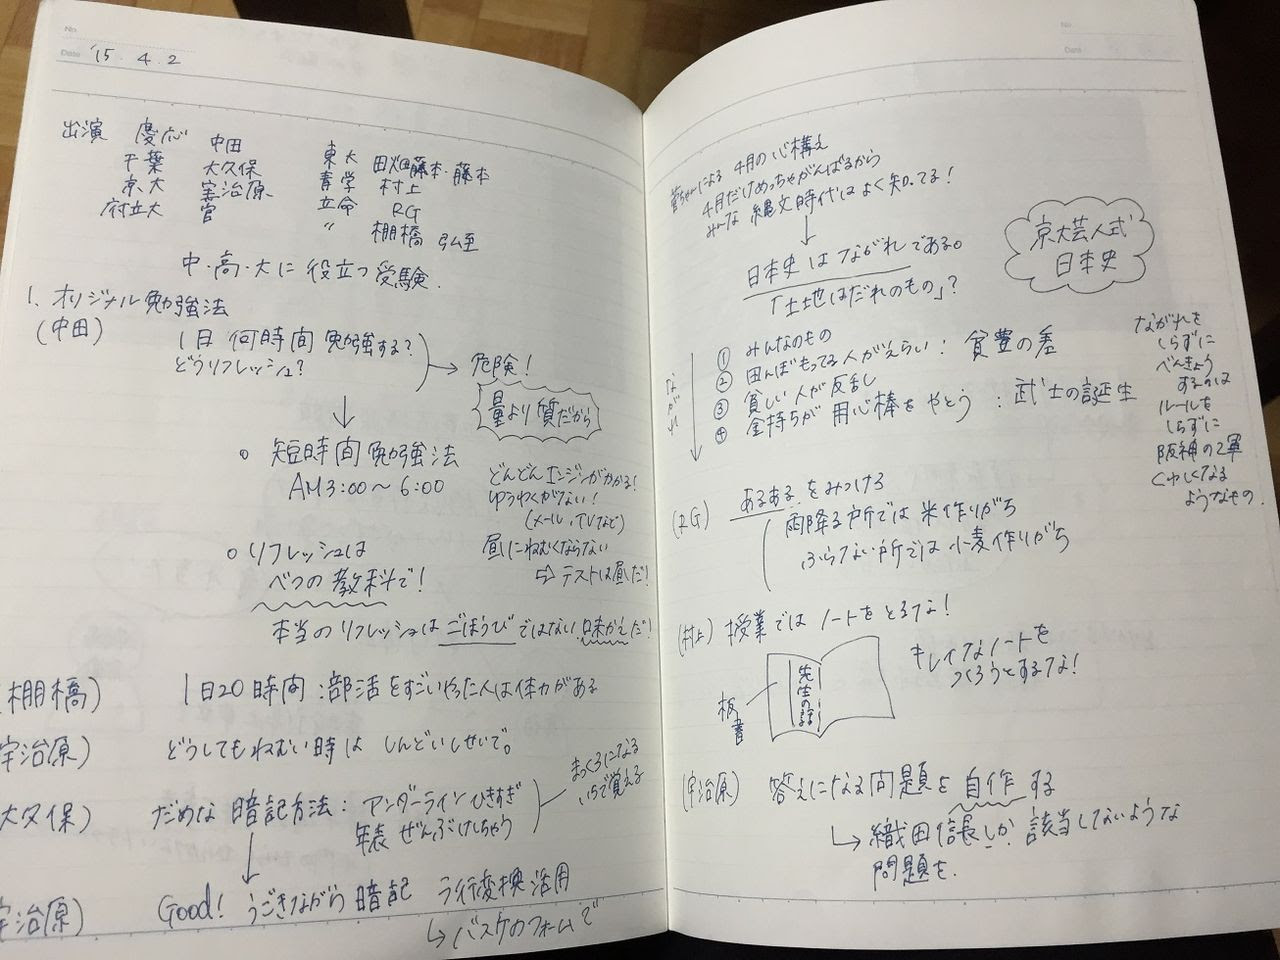 No.
Date '15. 4. 2
出演 慶応 中田 東大 田畑藤本・藤本
千葉 大久保 青学 村上
京大 宇治原 立命 RG
府立大 菅 〃 棚橋 弘至
中・高・大に役立つ受験.
1. オリジナル勉強法
(中田) 1日何時間勉強する?
どうリフレッシュ?
危険!
量より質だから
○ 短時間勉強法
AM3:00〜6:00
どんどんエンジンがかかる!
ゆうわくがない!
(メール、TVなど)
昼にねむくならない
⇨ テストは昼だ!
○ リフレッシュは
べつの教科で!
本当のリフレッシュはごほうびではない味かえだ!
(棚橋) 1日20時間:部活をすごいやった人は体力がある
宇治原) どうしてもねむい時は しんどいしせいで。
大久保) だめな暗記方法:アンダーラインひきすぎ
年表ぜんぶけしちゃう
まっくろになる
いちで覚える
宇治原) Good! うごきながら暗記 ラ行変換活用
↳ バスケのフォームで
No.
Date
菅ちゃんによる 4月の心構え
4月だけめっちゃがんばるから
みんな 縄文時代はよく知ってる!
↓
日本史はながれである。
「土地はだれのもの」?
京大芸人式
日本史
ながれ
① みんなのもの
② 田んぼもってる人がえらい:貧豊の差
③ 貧しい人が反乱し
④ 金持ちが用心棒をやとう:武士の誕生
ながれを
しらずに
べんきょう
するのは
ルールを
しらずに
阪神の2軍
くわしくなる
ようなもの.
(RG) あるあるをみつける
雨降る所では米作りがち
ふらない所では小麦作りがち
(村上) 授業ではノートをとるな!
板書
先生の話
キレイなノートを
つくろうとするな!
(宇治原) 答えになる問題を自作する
↳ 織田信長しか該当しないような
問題を.